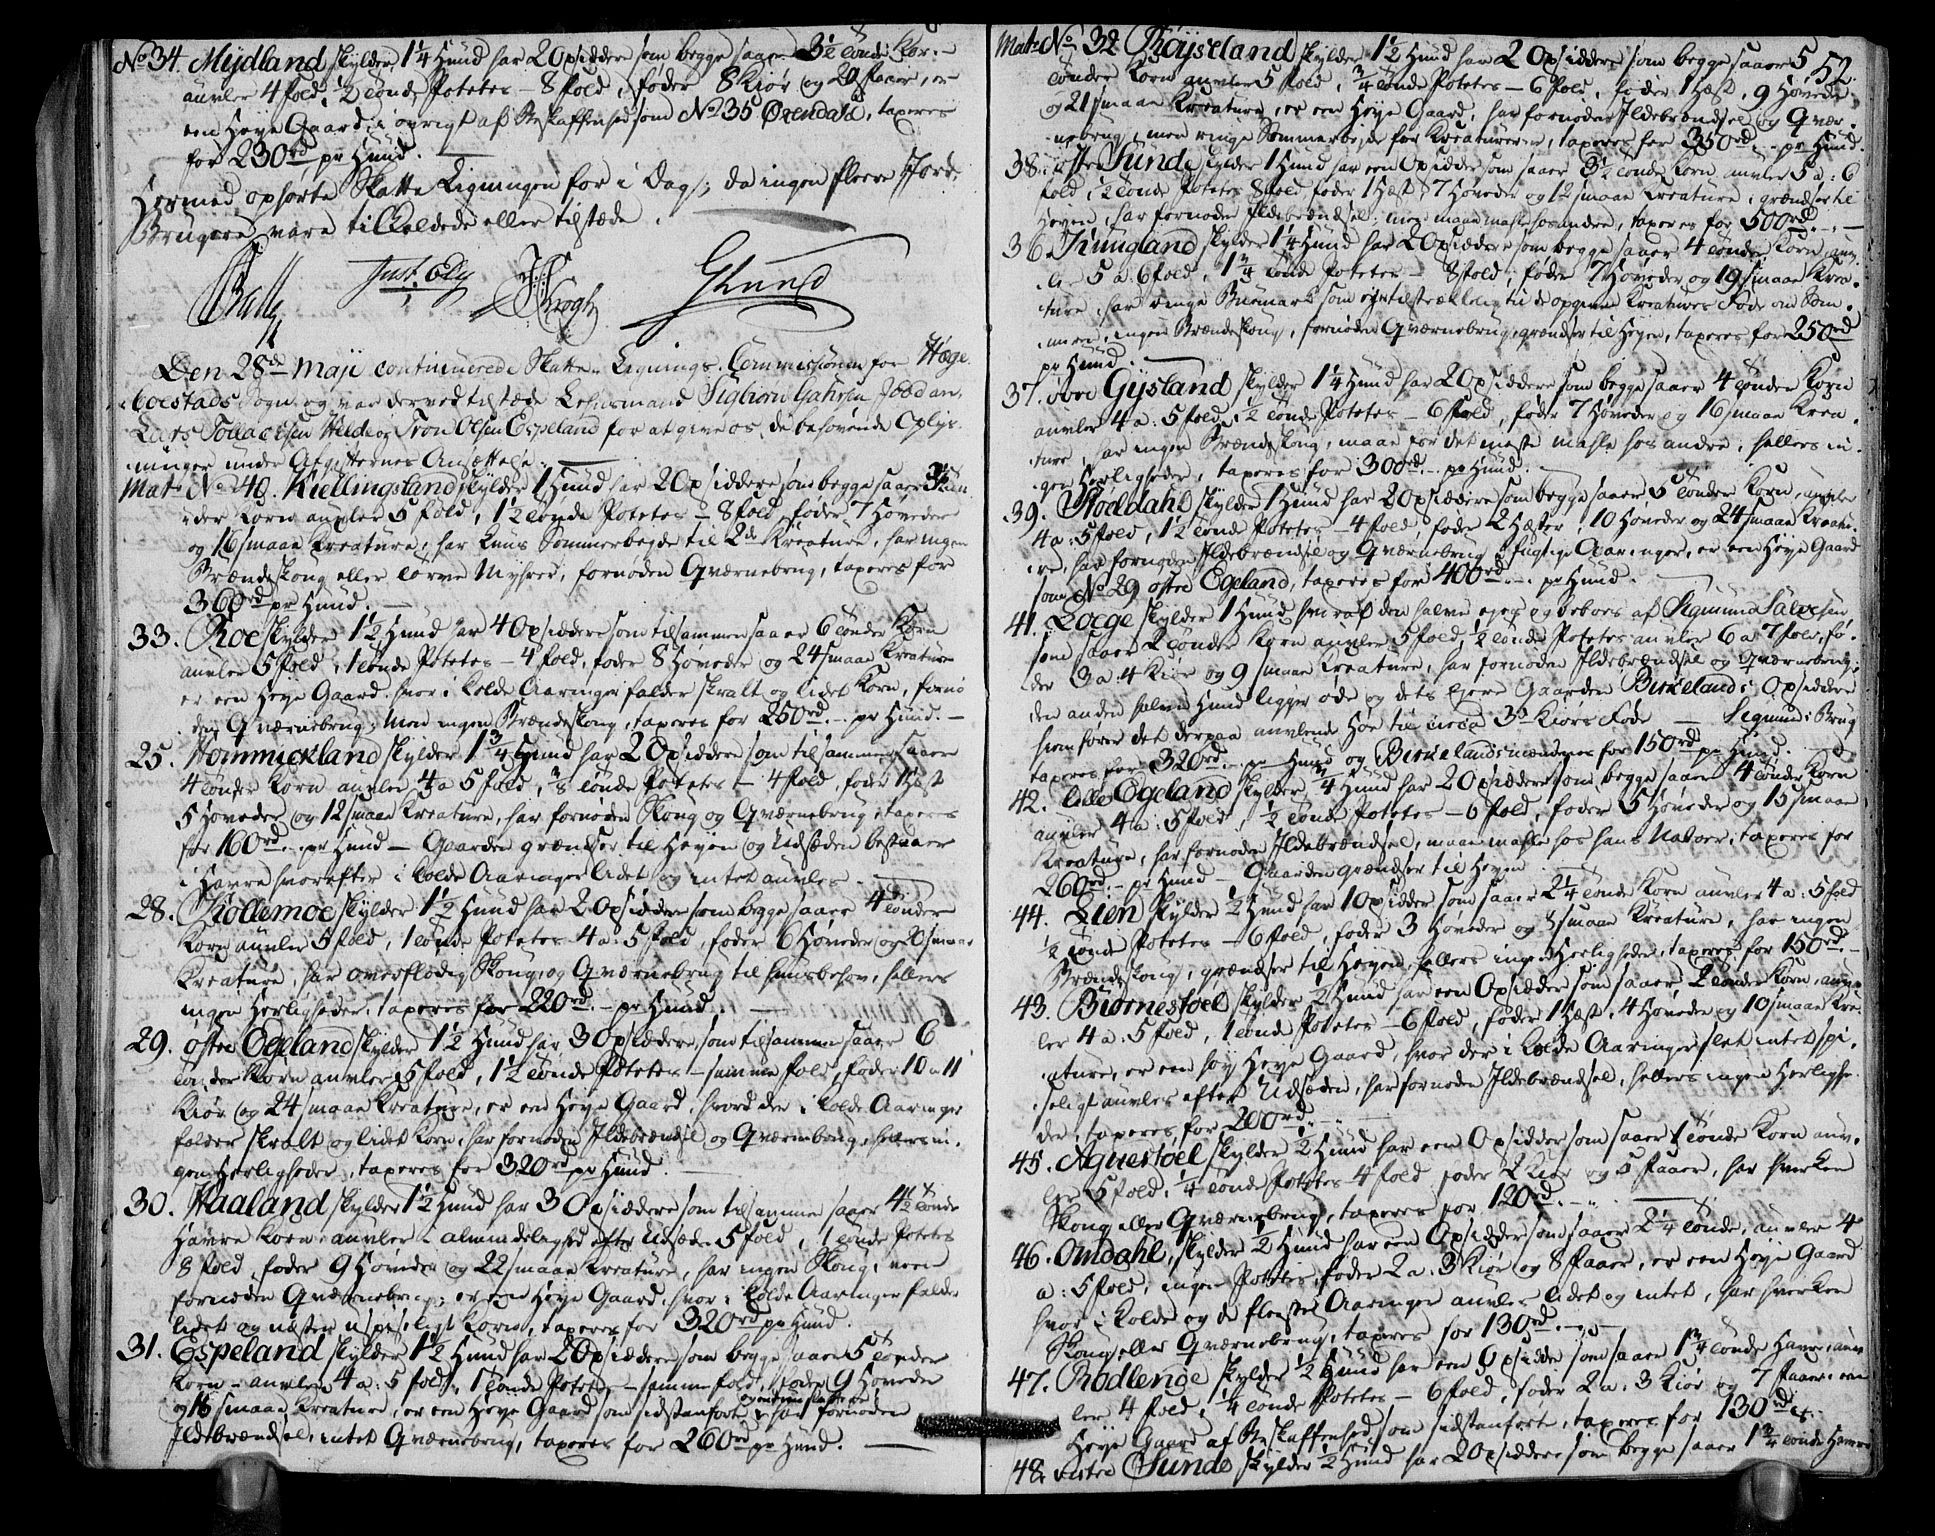 No 34. Mydland skylder 1 1/4 Hund har 2 Opsiddere som begge saaer 3 1/2 tønde Kor-
auvler 4 fold, 1/2 tønde Potetes – 8 fold, føder 8 Kiør og 20 faaer, er
een Heye Gaard i øvrigt af Beskaffenhed som No 35 Ørendahl, taxeres
for 230rd pr Hund.
Hermed ophørte Skatte Ligningen for i Dag, da ingen fleere Jord-
Brugere vare tilkaldede eller tilstæde.
Just. Ely
Krogh
GLund
Den 28de Maji continuerede Skatte-Lignings-Commissionen for Hæge-
boestads Sogn, og var derved tilstæde Lehnsmand Sigbiørn
Lars Tollacksen og Tron Olsen Espeland for at give os de behøvende Oplys-
ninger under Afgifternes Ansættelse.
Mat: No 40. Kiellingsland skylder 1 Hund har 2 Opsiddere som begge saaer 3 1/2 tøn-
der Korn auvler 5 fold, 1 1/2 tønde Potetes – 8 fold, føder 7 Høveder
og 16 smaae Kreature, har Sommerbeyde til Kreature, har ingen
Brændeskoug eller Tørve Myhrer, fornøden Qværnebrug, taxeres for
360rd pr Hund.
33. Roe skylder 1 1/2 Hund har 4 Opsiddere som tilsammen saaer 6 tønder Korn
auvler 5 fold, 1 tønde Potetes – 4 fold, føder 8 Høveder og 24 smaae Kreature
er een Heye Gaard hvor i kolde Aaringer falder skralt og lidet Korn, fornø-
den Qværnebrug, men ingen Brændeskoug, taxeres for 250rd. pr Hund. –
25. Hommeckland skylder 1 3/4 Hund har 2 Opsiddere som tilsammen saaer
4 tønder Korn auvler 4 a 5 fold, tønde Potetes – 4 fold, føder 1 Hest
5 Høveder og 12 smaae Kreature, har fornøden Skoug og Qværnebrug, taxeres
for 160rd. pr Hund – Gaarden grændser til Heyen og Udsæden bestaaer
i Havre hvorefter i kolde Aaringer lidet og intet auvles.
28. Kollemoe skylder 1 1/2 Hund har 2 Opsiddere som begge saaer 4 tønder
Korn auvler 5 fold, 1 tønde Potetes 4 a: 5 fold, føder 6 Høveder og 20 smaae
Kreature, har overflødig Skoug, og Qværnebrug til Huusbehov, hellers
ingen Herligheder, taxeres for 220rd. – pr Hund.
29. østre Egeland skylder 1 1/2 Hund har 3 Opsiddere, som tilsammen saaer 6
tønder Korn auvler 5 fold, 1 1/2 tønde Potetes – samme fold, føder 10 a 11
Kiør og 24 smaae Kreature, er een Heye Gaard, hvor der i kolde Aaringer
falder skralt og lidet Korn, har fornøden Ildebrændsel og Qværnebrug, hellers in-
gen Herligheder, taxeres for 320rd pr Hund.
30. Haaland skylder 1 1/2 Hund har 3 Opsiddere som tilsammen saaer 4 1/2 tønde
Havre Korn auvler i almindelighed efter Udsæde 5 fold, 1 tønde Potetes
8 fold, føder 9 Høveder og 22 smaae Kreature, har ingen Skoug, men
fornøden Qværnebrug; er een Heye Gaard, hvor i kolde Aaringer falder
lidet og næsten u spiseligt Korn, taxeres for 320rd pr Hund.
31. Espeland skylder 1 1/2 Hund har 2 Opsiddere som begge saaer 5 tønder
Korn – auvler 4 a: 5 fold, 1 tønde Potetes – samme fold, føder 9 Høveder
og 16 smaae Kreature, er een Heye Gaard som sidstanførte, har fornøden
Ildebrændsel, intet Qværnebrug, taxeres for 260rd pr Hund.
52.
Mat: No 32 Røyseland skylder 1 1/2 Hund har 2 Opsiddere som begge saaer 5
tønder Korn auvler 5 fold, 3/4 tønde Potetes – 6 fold, føder 1 Hæst, 9 Høveder
og 21 smaae Kreature, er een Heye Gaard, har fornøden Ildebrændsel og Qvær-
nebrug, men ringe Sommerbeyde for Kreaturerne, taxeres for 350rd. pr Hund.
38. østre Sunde skylder 1 Hund har een Opsidder som saaer 3 1/2 tønde Korn auvler 5 a: 6
fold, 1/2 tønde Potetes 8 fold føder 1 Hæst, 7 Høveder og 12 smaae Kreature, grændser til
Heyen, har fornøden Ildebrændsel, men maae mahle hos andre, taxeres for 500rd. –
36. Kiungland skylder 1 1/4 Hund har 2 Opsiddere som begge saaer 4 tønder Korn auv-
ler 5 a: 6 fold, 1 3/4 tønde Potetes – 8 fold, føder 7 Høveder og 19 smaae Krea-
ture, har ringe Buemark som ey er tilstrækkelig til de opgivne Kreatures Føde om Som-
meren, ingen Brændeskoug, fornøden Qværnebrug, grændser til Heyen, taxeres for 250rd
pr Hund.
37. øvre Gysland skylder 1 1/4 Hund har 2 Opsiddere som begge saaer 4 tønder Korn
auvler 4 a: 5 fold, 1/2 tønde Potetes – 6 fold, føder 7 Høveder og 16 smaae Krea-
ture, har ingen Brændeskoug, maae for det meste mahle hos andre, hellers in-
gen Herligheder, taxeres for 300rd. – pr Hund.
39. Stoddahl skylder 1 Hund har 2 Opsiddere som begge saaer 5 tønder Korn, auvler
4 a: 5 fold, 1 1/2 tønde Potetes – 4 fold, føder 2 Hæster, 10 Høveder og 24 smaae Kreatu-
re, har fornøden Ildebrændsel og Qværnebrug i fugtige Aaringer, er een Heye Gaard
som No 29 østre Egeland, taxeres for 400rd. – pr Hund.
41. Loege skylder 1 Hund hvoraf den halve ejes og beboes af Sigmund Salvesen
som saaer 2 tønder Korn auvler 5 fold, 1/2 tønde Potetes auvler 6 a 7 fold, fø-
der 3 a: 4 Kiør og 9 smaae Kreature, har fornøden Ildebrændsel og Qværnebrug,
den anden halve Hund ligger øde og dets Ejere Gaarden Birkelands Opsiddere
hiemfører det derpaa auvlende Høe til circa 3de Kiørs Føde – Sigmunds Brug
taxeres for 320rd. pr Hund og Birkelandsmændenes for 150rd pr Hund.
42. lille Egeland skylder 3/4 Hund har 2 Opsiddere som begge saaer 4 tønder Korn
auvler 4 a: 5 fold, 1/2 tønde Potetes – 6 fold, føder 5 Høveder og 15 smaae
Kreature, har fornøden Ildebrændsel, maae mahle hos hans Naboer, taxeres for
260rd. – pr Hund – Gaarden grændser til Heyen.
44. Lien skylder 1/2 Hund har 1 Opsidder som saaer 2 1/4 tønde Korn auvler 4 a: 5 fold
1/2 tønde Potetes – 6 fold, føder 3 Høveder og 8 smaae Kreature, har ingen
Brændeskoug, grændser til Heyen, hellers ingen Herligheder, taxeres for 150rd. –
43. Biørnestoel skylder 1/2 Hund har een Opsidder som saaer 2 tønder Korn, auv-
ler 4 a: 5 fold, 1 tønde Potetes – 6 fold, føder 1 Hæst, 4 Høveder og 10 smaae Kre-
ature, er een høy Heye Gaard, hvor der i kolde Aaringer slet intet spi-
seligt auvles efter Udsæden, har fornøden Ildebrændsel, hellers ingen Herlighe-
der, taxeres for 200rd. –
45. Aguestoel skylder 1/2 Hund har een Opsidder som saaer 1 tønde Korn auv-
ler 5 fold, 1/4 tønde Potetes 4 fold føder 2 Kiør og 5 faaer, har hverken
Skoug eller Qværnebrug, taxeres for 120rd. –
46. Omdahl, skylder 1/2 Hund har een Opsidder som saaer 2 1/4 tønde, auvler 4
a: 5 fold, ingen Potetes, føder 2 a: 3 Kiør og 8 faaer, er een Heye Gaard
hvor i kolde og de fleeste Aaringer auvles lidet og intet, har hverken
Skoug eller Qværnebrug, taxeres for 130rd. –
47. Rødlenge skylder 1/2 Hund har een Opsidder som saaer 1 3/4 tønde Havre, auv-
ler 4 fold, 1/4 tønde Potetes – 6 fold, føder 2 a: 3 Kiør og 7 faaer, een
Heye Gaard af Beskaffenhed som sidstanførte, taxeres for 130rd
48. vestre Sunde skylder 1/2 Hund har 2 Opsiddere som begge saaer 1 3/4 tønde Havre